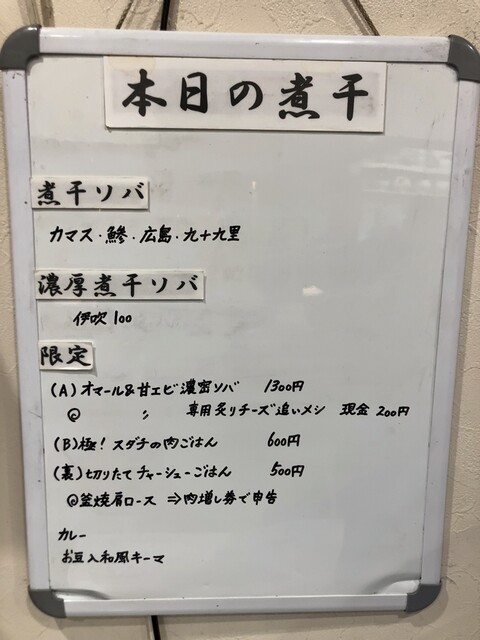 本日の煮干
煮干ソバ
カマス・鯵・広島・九十九里
濃厚煮干ソバ
伊吹100
限定
(A) オマール&甘エビ濃密ソバ 1300円
@ 〃 専用炙りチーズ追いメシ 現金 200円
(B) 極! スダチの肉ごはん 600円
(裏) 切りたてチャーシューごはん 500円
@釜焼肩ロース ⇒肉増し券で申告
カレー
お豆入和風キーマ